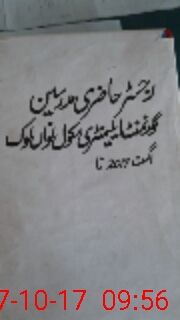 رجسٹر حاضری مدرسین
گورنمنٹ ایلیمنٹری سکول نواں لوک
اگست 2017 تا
7-10-17 09:56